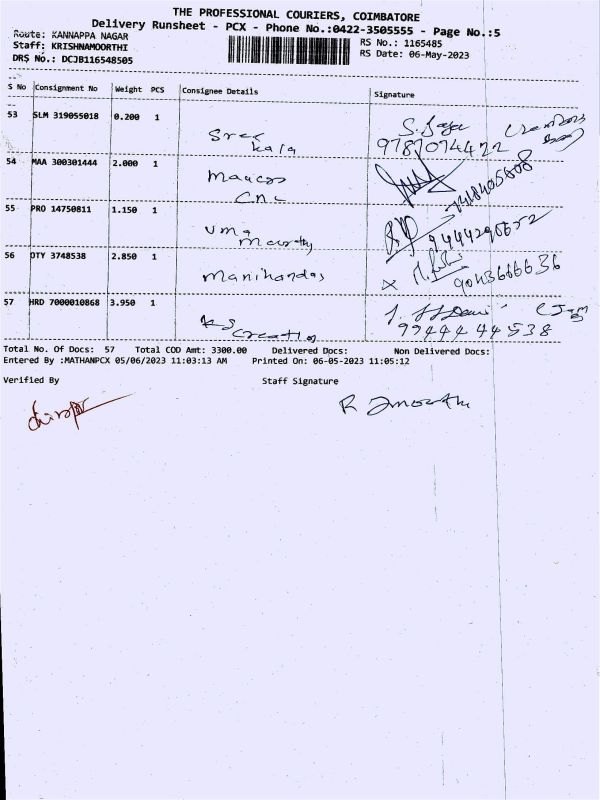 THE PROFESSIONAL COURIERS, COIMBATORE
Delivery Runsheet - PCX - Phone No.:0422-3505555 - Page No.:5
Route: KANNAPPA NAGAR RS No.: 1165485
Staff: KRISHNAMOORTHI RS Date: 06-May-2023
DRS No.: DCJB116548505
S No Consignment No Weight PCS Consignee Details Signature
53 SLM 319055018 0.200 1
Sree
kala 9787074422
54 MAA 300301444 2.000 1
Maacos
CNC
55 PRO 14750811 1.150 1
Uma
Moorthy 9444290652
56 OTY 3748538 2.850 1
Manihandas 9043666636
57 HRD 7000010868 3.950 1
KS
Creation 99444 44538
Total No. Of Docs: 57 Total COD Amt: 3300.00 Delivered Docs: Non Delivered Docs:
Entered By :MATHANPCX 05/06/2023 11:03:13 AM Printed On: 06-05-2023 11:05:12
Verified By Staff Signature